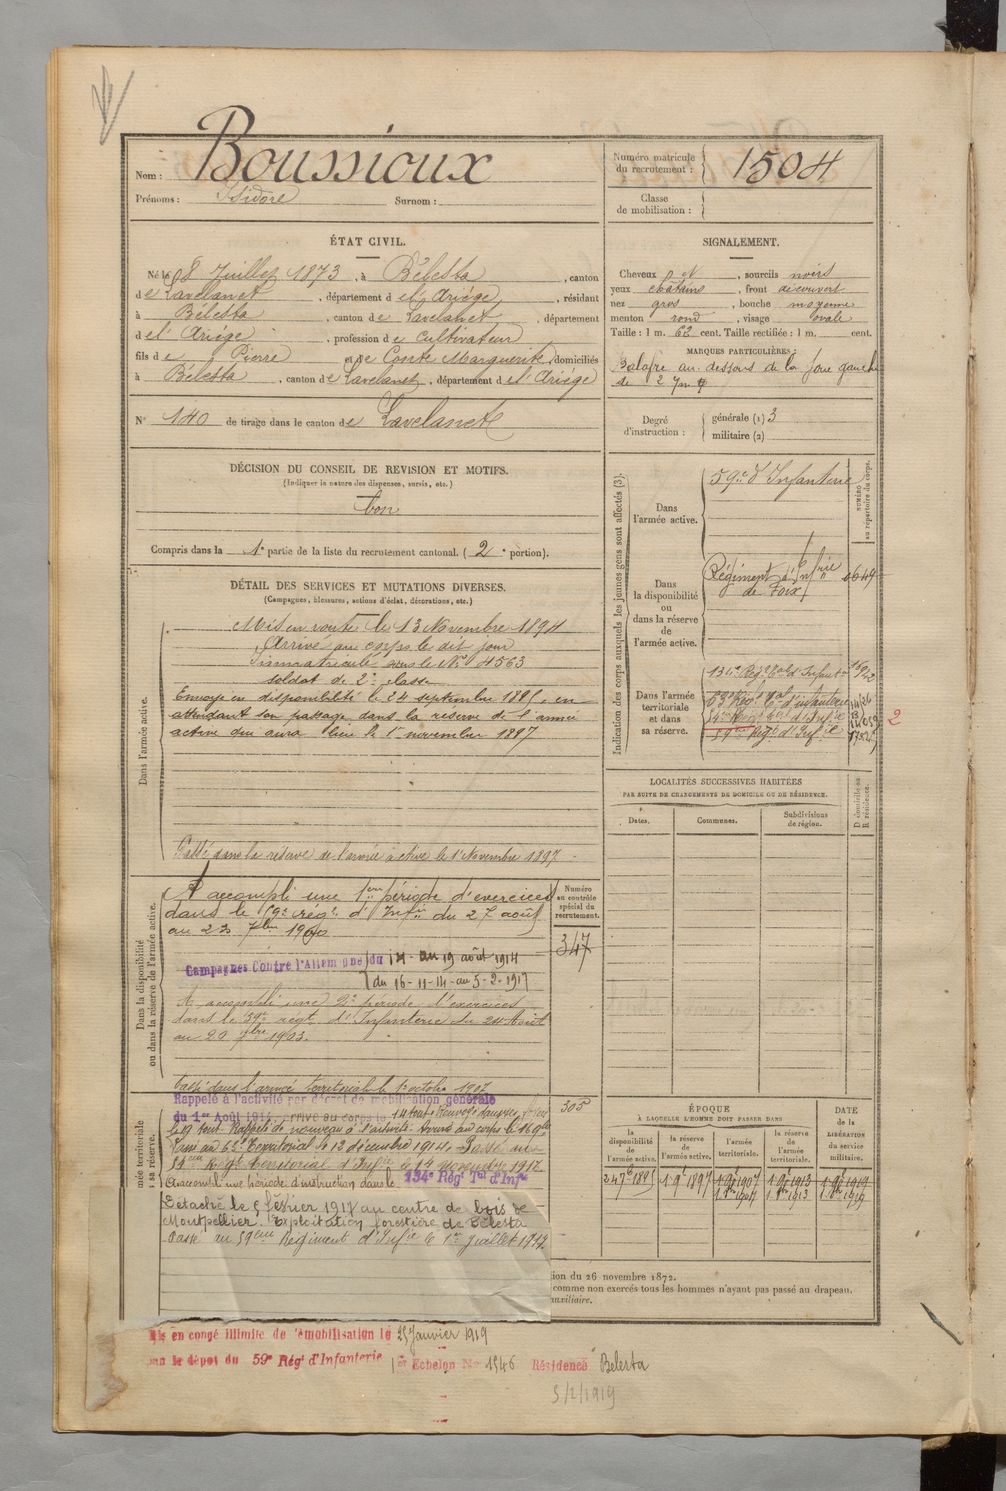 Nom : Boussioux
Prénoms : Isidore Surnom :
Numéro matricule du recrutement : 1504
Classe de mobilisation :
ÉTAT CIVIL.
Né le 8 Juillet 1873, à Bélesta, canton
de Lavelanet, département de l'Ariége, résidant
à Bélesta, canton de Lavelanet, département
de l'Ariége, profession de Cultivateur
fils de Pierre et de Conte Marguerite, domiciliés
à Bélesta, canton de Lavelanet, département de l'Ariége
N° 140 de tirage dans le canton de Lavelanet
SIGNALEMENT.
Cheveux et, sourcils noirs
yeux chatains, front découvert
nez gros, bouche moyenne
menton rond, visage ovale
Taille : 1 m. 62 cent. Taille rectifiée : 1 m. cent.
MARQUES PARTICULIÈRES :
Balafre au dessous de la joue gauche
de 2
Degré d'instruction : générale (1) 3
militaire (2)
DÉCISION DU CONSEIL DE REVISION ET MOTIFS.
(Indiquer la nature des dispenses, sursis, etc.)
bon
Compris dans la 1e partie de la liste du recrutement cantonal. (2e portion).
DÉTAIL DES SERVICES ET MUTATIONS DIVERSES.
(Campagnes, blessures, actions d'éclat, décorations, etc.)
Dans l'armée active.
Mis en route le 13 Novembre 1894
Arrivé au corps le dit jour
Immatriculé sous le N° 4563
soldat de 2e classe
Envoyé en disponibilité le 24 septembre 1895, en
attendant son passage dans la réserve de l'armée
active qui aura lieu le 1er novembre 1897
Passé dans la réserve de l'armée active le 1er Novembre 1897
Dans la disponibilité ou dans la réserve de l'armée active.
A accompli une 1ere période d'exercices
dans le 59e rég. d'Infie du 27 août
au 23 7bre 1900
Campagnes Contre l'Allemagne du 14 au 19 août 1914
du 16-11-14 au 5-2-1917
A accompli une 2e période d'exercices
dans le 59e regt d'Infanterie du 24 Août
au 20 7bre 1903.
Passé dans l'armée territoriale le 1er octobre 1907
Numéro au contrôle spécial du recrutement.
347
305
mée territoriale
sa réserve.
Rappelé à l'activité par décret de mobilisation générale
du 1er Août 1914, arrivé au corps le 14 août. Renvoyé dans ses foyers
le 19 août. Rappelé de nouveau à l'activité. Arrivé au corps le 16 9bre
Passé au 63e Territorial le 12 décembre 1914. Passé au
Régt territorial d'Infie le 14 novembre
A accompli une période d'instruction dans le 134e Régt Tal d'Infie
Détaché le 5 février 1917 au centre de bois de
Montpellier. Exploitation forestière de Bélesta
Passé au 59eme Régiment d'Infie le 1er juillet 1917.
Indication des corps auxquels les jeunes gens sont affectés (3).
NUMÉRO au répertoire du corps.
Dans l'armée active.
59e d'Infanterie
Dans la disponibilité ou dans la réserve de l'armée active.
Régiment d'Infrie
de Foix
0649
Dans l'armée territoriale et dans sa réserve.
134e Régt Tal d'Infanterie
63e Régt Tal d'infanterie
Régt d'Infie
59e Régt d'Infie
2
LOCALITÉS SUCCESSIVES HABITÉES
PAR SUITE DE CHANGEMENTS DE DOMICILE OU DE RÉSIDENCE.
Dates. Communes. Subdivisions de région. D domicile ou R résidence.
ÉPOQUE
À LAQUELLE L'HOMME DOIT PASSER DANS
DATE de la LIBÉRATION du service militaire.
la disponibilité de l'armée active. la réserve de l'armée active. l'armée territoriale. la réserve de l'armée territoriale.
24 7bre 1895 1 9e 1897 1 9e 1907 1 9e 1913 1 9e 1919
ion du 26 novembre 1872.
comme non exercés tous les hommes n'ayant pas passé au drapeau.
auxiliaire.
is en congé illimité de démobilisation le 25 Janvier 1919
par le dépôt du 59e Régt d'Infanterie 1er Echelon No 1546 Résidence Belesta
3/2/1919